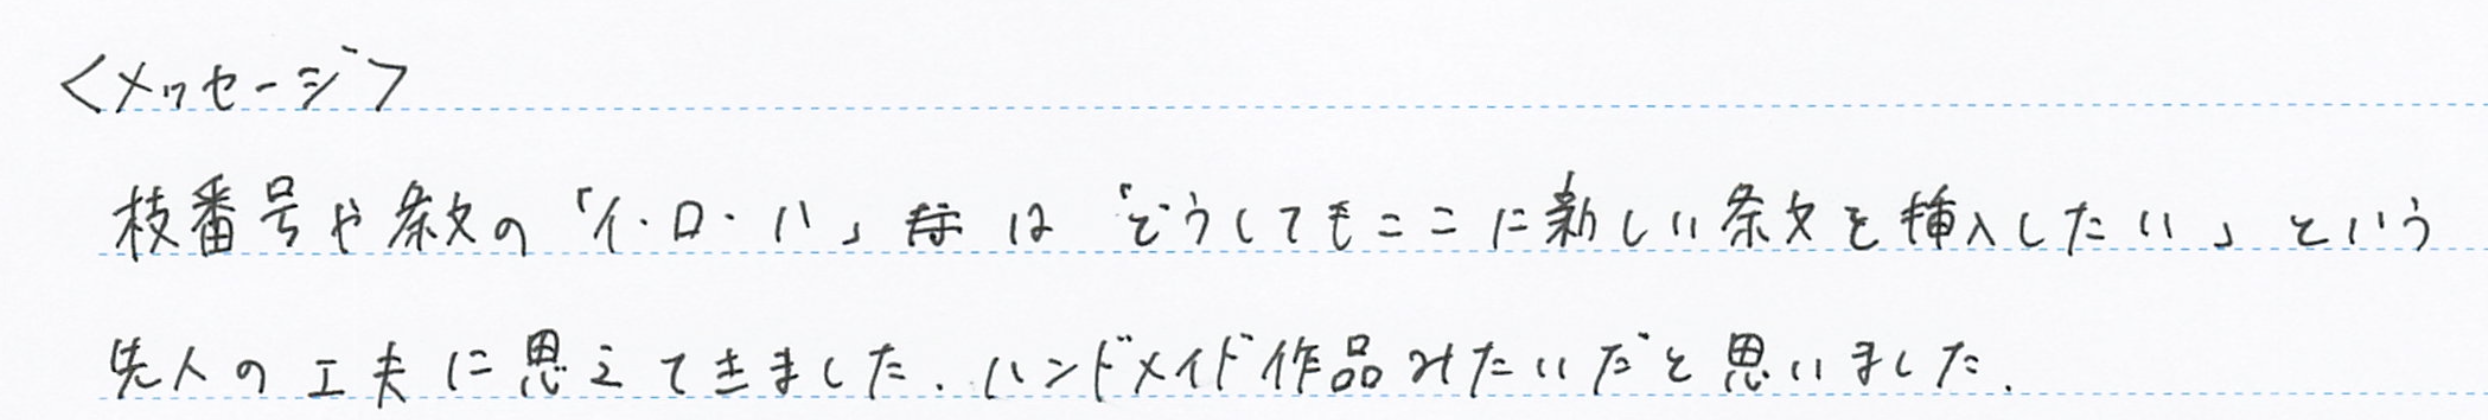 <メッセージ>
枝番号や条文の「イ・ロ・ハ」は「どうしてもここに新しい条文を挿入したい」という
先人の工夫に思えてきました.ハンドメイド作品みたいだと思いました.